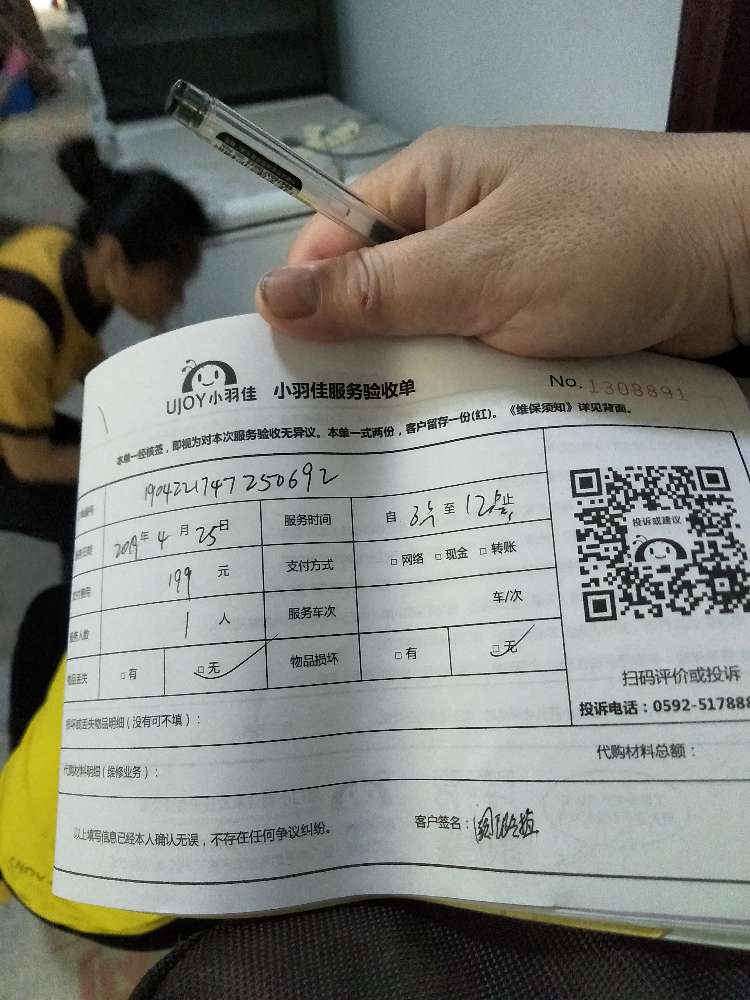 UJOY小羽佳 小羽佳服务验收单 No. 1308891
本单一经核签，即视为对本次服务验收无异议。本单一式两份，客户留存一份(红)。《维保须知》详见背面。
编号 1904221747250692
日期 2019年4月25日 服务时间 自 至 12 止
费用 199 元 支付方式 □网络 □现金 □转账
服务人数 1 人 服务车次 车/次
物品丢失 □有 □无 物品损坏 □有 □无
投诉或建议
扫码评价或投诉
投诉电话：0592-517888
损坏或丢失物品明细（没有可不填）：
代购材料明细（维修业务）： 代购材料总额：
以上填写信息已经本人确认无误，不存在任何争议纠纷。 客户签名：